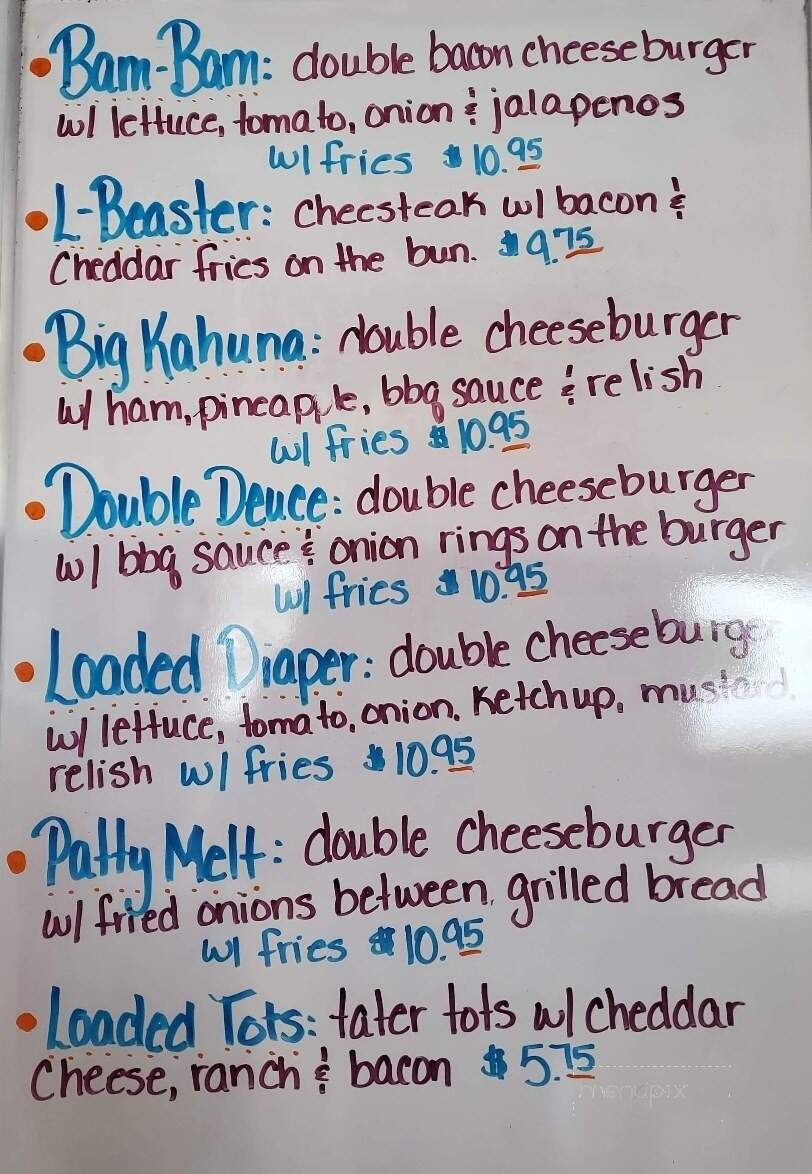 • Bam-Bam: double bacon cheeseburger
w/ lettuce, tomato, onion & jalapenos
w/ fries $10.95
• L-Beaster: cheesteak w/ bacon &
Cheddar fries on the bun. $9.75
• Big Kahuna: double cheeseburger
w/ ham, pineapple, bbq sauce & relish
w/ fries $10.95
• Double Deuce: double cheeseburger
w/ bbq sauce & onion rings on the burger
w/ fries $10.95
• Loaded Diaper: double cheeseburger
w/ lettuce, tomato, onion, Ketchup, mustard,
relish w/ fries $10.95
• Patty Melt: double cheeseburger
w/ fried onions between grilled bread
w/ fries $10.95
• Loaded Tots: tater tots w/ cheddar
Cheese, ranch & bacon $5.75
menupix